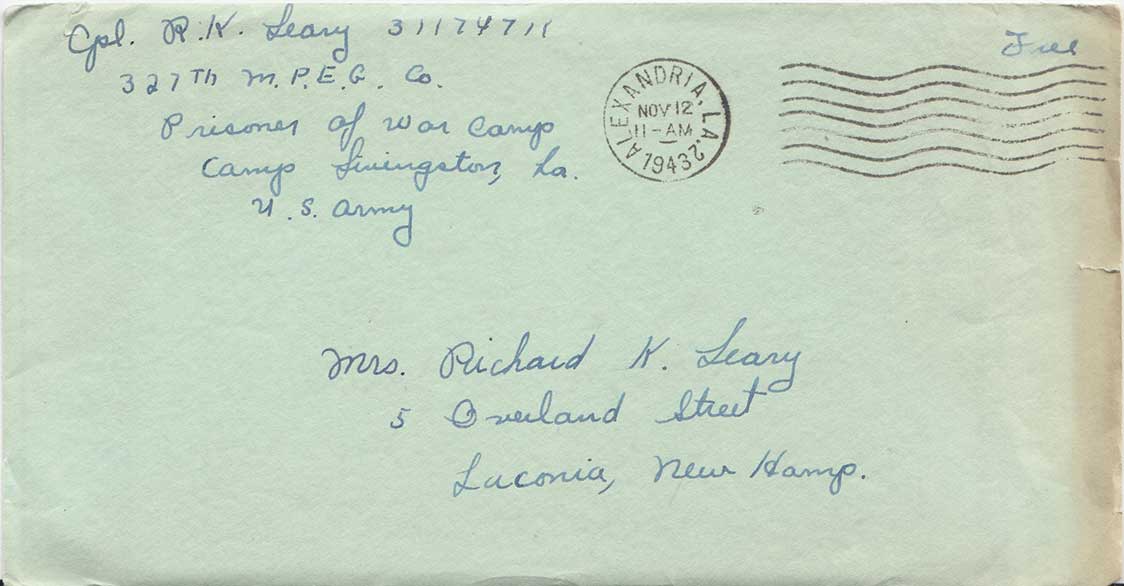 Cpl. R. K. Leary 31174711
Free
327TH M.P.E.G. Co.
Prisoner of War Camp
Camp Livingston, La.
U.S. Army
ALEXANDRIA, LA. 2
NOV 12
11-AM
1943
Mrs. Richard K. Leary
5 Overland Street
Laconia, New Hamp.